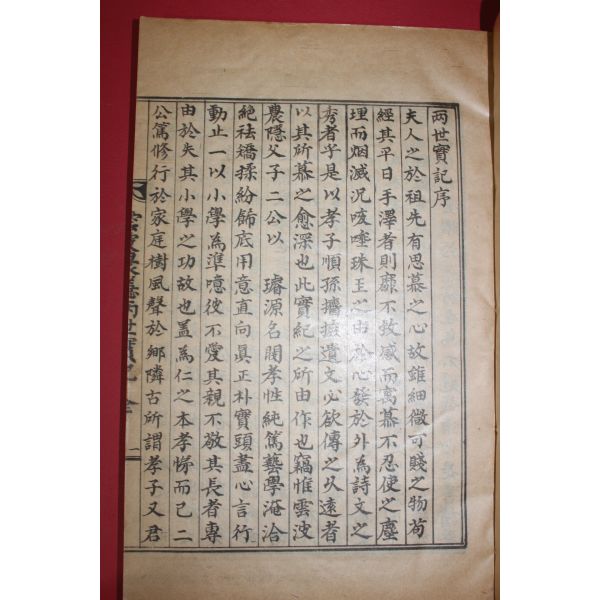 兩世實記序
夫人之於祖先有思慕之心故雖細微可賤之物苟
經其平日手澤者則靡不致感而寓慕不忍使之塵
埋而烟滅況咳唾珠玉之由於心發於外為詩文之
秀者乎是以孝子順孫摭遺文必欲傳之久遠者
以其所慕之愈深也此實紀之所由作也竊惟雲波
農隱父子二公以 璿源名閥孝性純篤藝學淹洽
絶祛矯揉紛飾底用意直向眞正朴實頭盡心言行
動止一以小學為準噫彼不愛其親不敬其長者專
由於失其小學之功故也盖為仁之本孝悌而已二
公篤修行於家庭樹風聲於鄉隣古所謂孝子又君
兩世實記 全 一